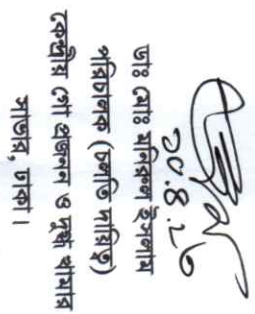 ডাঃ মোঃ মনিরুল ইসলাম
পরিচালক (চলতি দায়িত্ব)
কেন্দ্রীয় গো প্রজনন ও দুগ্ধ খামার
সাভার, ঢাকা।